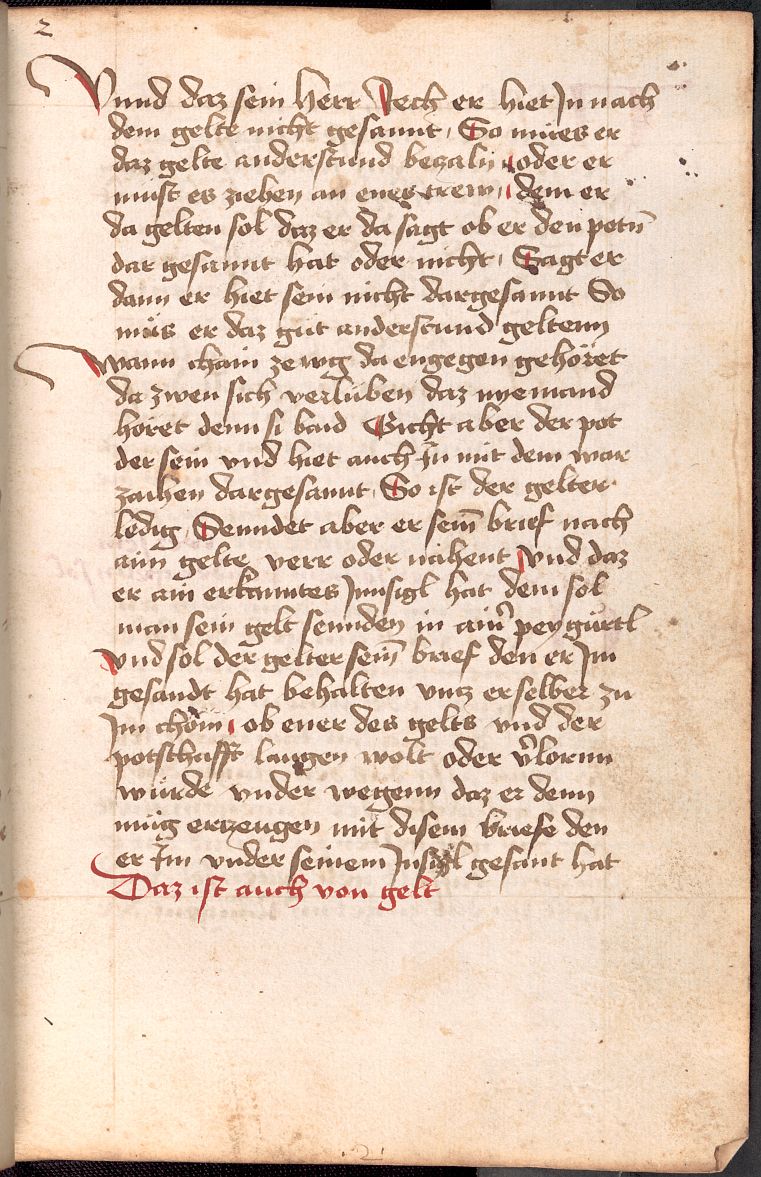 2
Vnnd daz sein herr Jech er hiet Jn nach
dem gelte nicht gesannt, So mues er
daz gelte anderstund bezaln oder er
must es ziehen an enes trew, dem er
da gelten sol daz er da sagt ob er den potn̄
dar gesannt hat oder nicht, Sagt er
dann er hiet sein nicht dargesannt So
műs er daz gůt anderstund geltenn
wann chain zewg da engegen gehöret
da zwen sich verluben daz nyemand
höret denn si baid Gicht aber der pot
der sein vnd hiet auch Jn mit dem war
zaihen dargesannt, So ist der gelter
ledig Senndet aber er sein̄ brief nach
aim gelte verr oder nähent vnd daz
er ain erkanntes Jnnsigl hat dem sol
man sein gelt sennden in aim̉ peygürtl
vnd sol der gelter sein̄ brief den er Jm
gesandt hat behalten vntz er selber zu
Jm chöm, ob ener des gelts vnd der
potschafft laugen wolt oder v̉lornn
würde vnder wegenn daz er denn
müg erzeugen mit disem briefe den
er Jm vnder seinem Jnsigl gesant hat
Daz ist auch von gelt
2